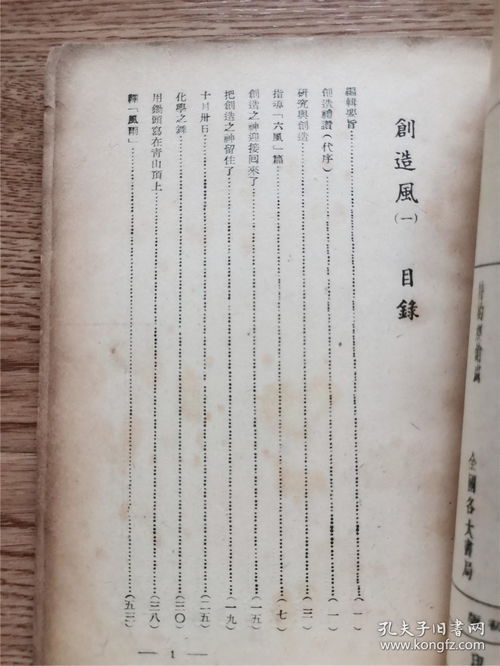 創造風(一) 目錄
編輯要旨……(一)
創造禮讚(代序)……(一)
研究與創造……(三)
指導「六風」篇……(七)
創造之神迎接回來了……(一五)
把創造之神留住了……(一九)
十月卅日……(二五)
化學之舞……(三〇)
用鋤頭寫在青山頂上……(三八)
釋「風雨」……(五三)
— 1 —
全國各大書局
孔夫子旧书网
kongfz.com